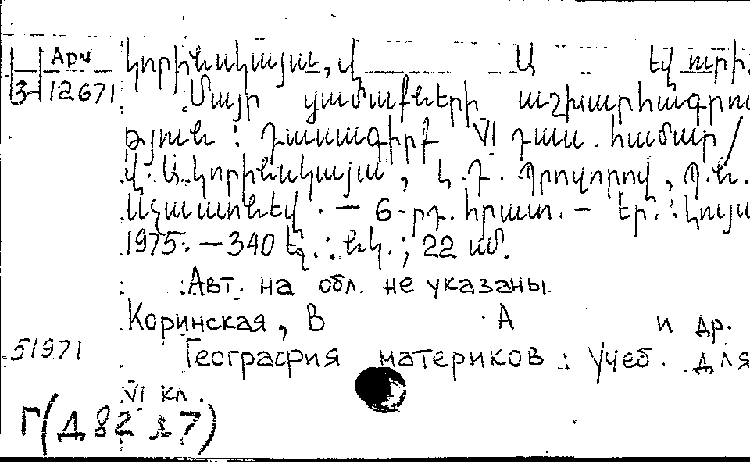 Арм Կորինսկայա, Վ Ա եվ ուրի
3 12671 Մայր ցամաքների աշխարհագրու
թյուն : Դասագիրք VI դաս. համար /
Վ. Ա. Կորինսկայա, Լ. Դ. Պրովորով, Պ. Ն.
— 6-րդ. հրատ. — Եր. : Լույս
1975. — 340 էջ. : նկ. ; 22 սմ.
Авт. на обл. не указаны
Коринская, В А и др.
51971 География материков : Учеб. для
VI кл.
Г(Д82 я7)